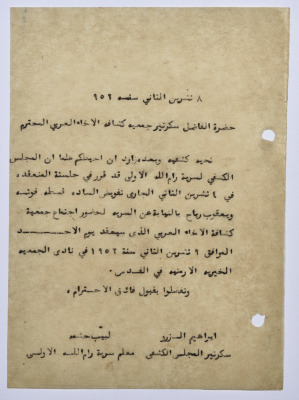 ٨ تشرين الثاني سنة ٩٥٢
حضرة الفاضل سكرتير جمعية كشافة الاخاء العربي المحترم
تحية كشفية وبعد اود ان احيطكم علما ان المجلس
الكشفي لسرية رام الله الاولى قد قرر في جلسته المنعقدة
في ٤ تشرين الثاني الجاري تفويض السادة
ويعقوب رباح بالنيابة عن السرية لحضور اجتماع جمعية
كشافة الاخاء العربي الذي سيعقد يوم الاحد
الموافق ٩ تشرين الثاني سنة ١٩٥٢ في نادي الجمعية
الخيرية الارمنية في القدس.
وتفضلوا بقبول فائق الاحترام ،
ابراهيم لبيب
سكرتير المجلس الكشفي معلم سرية رام الله الاولى